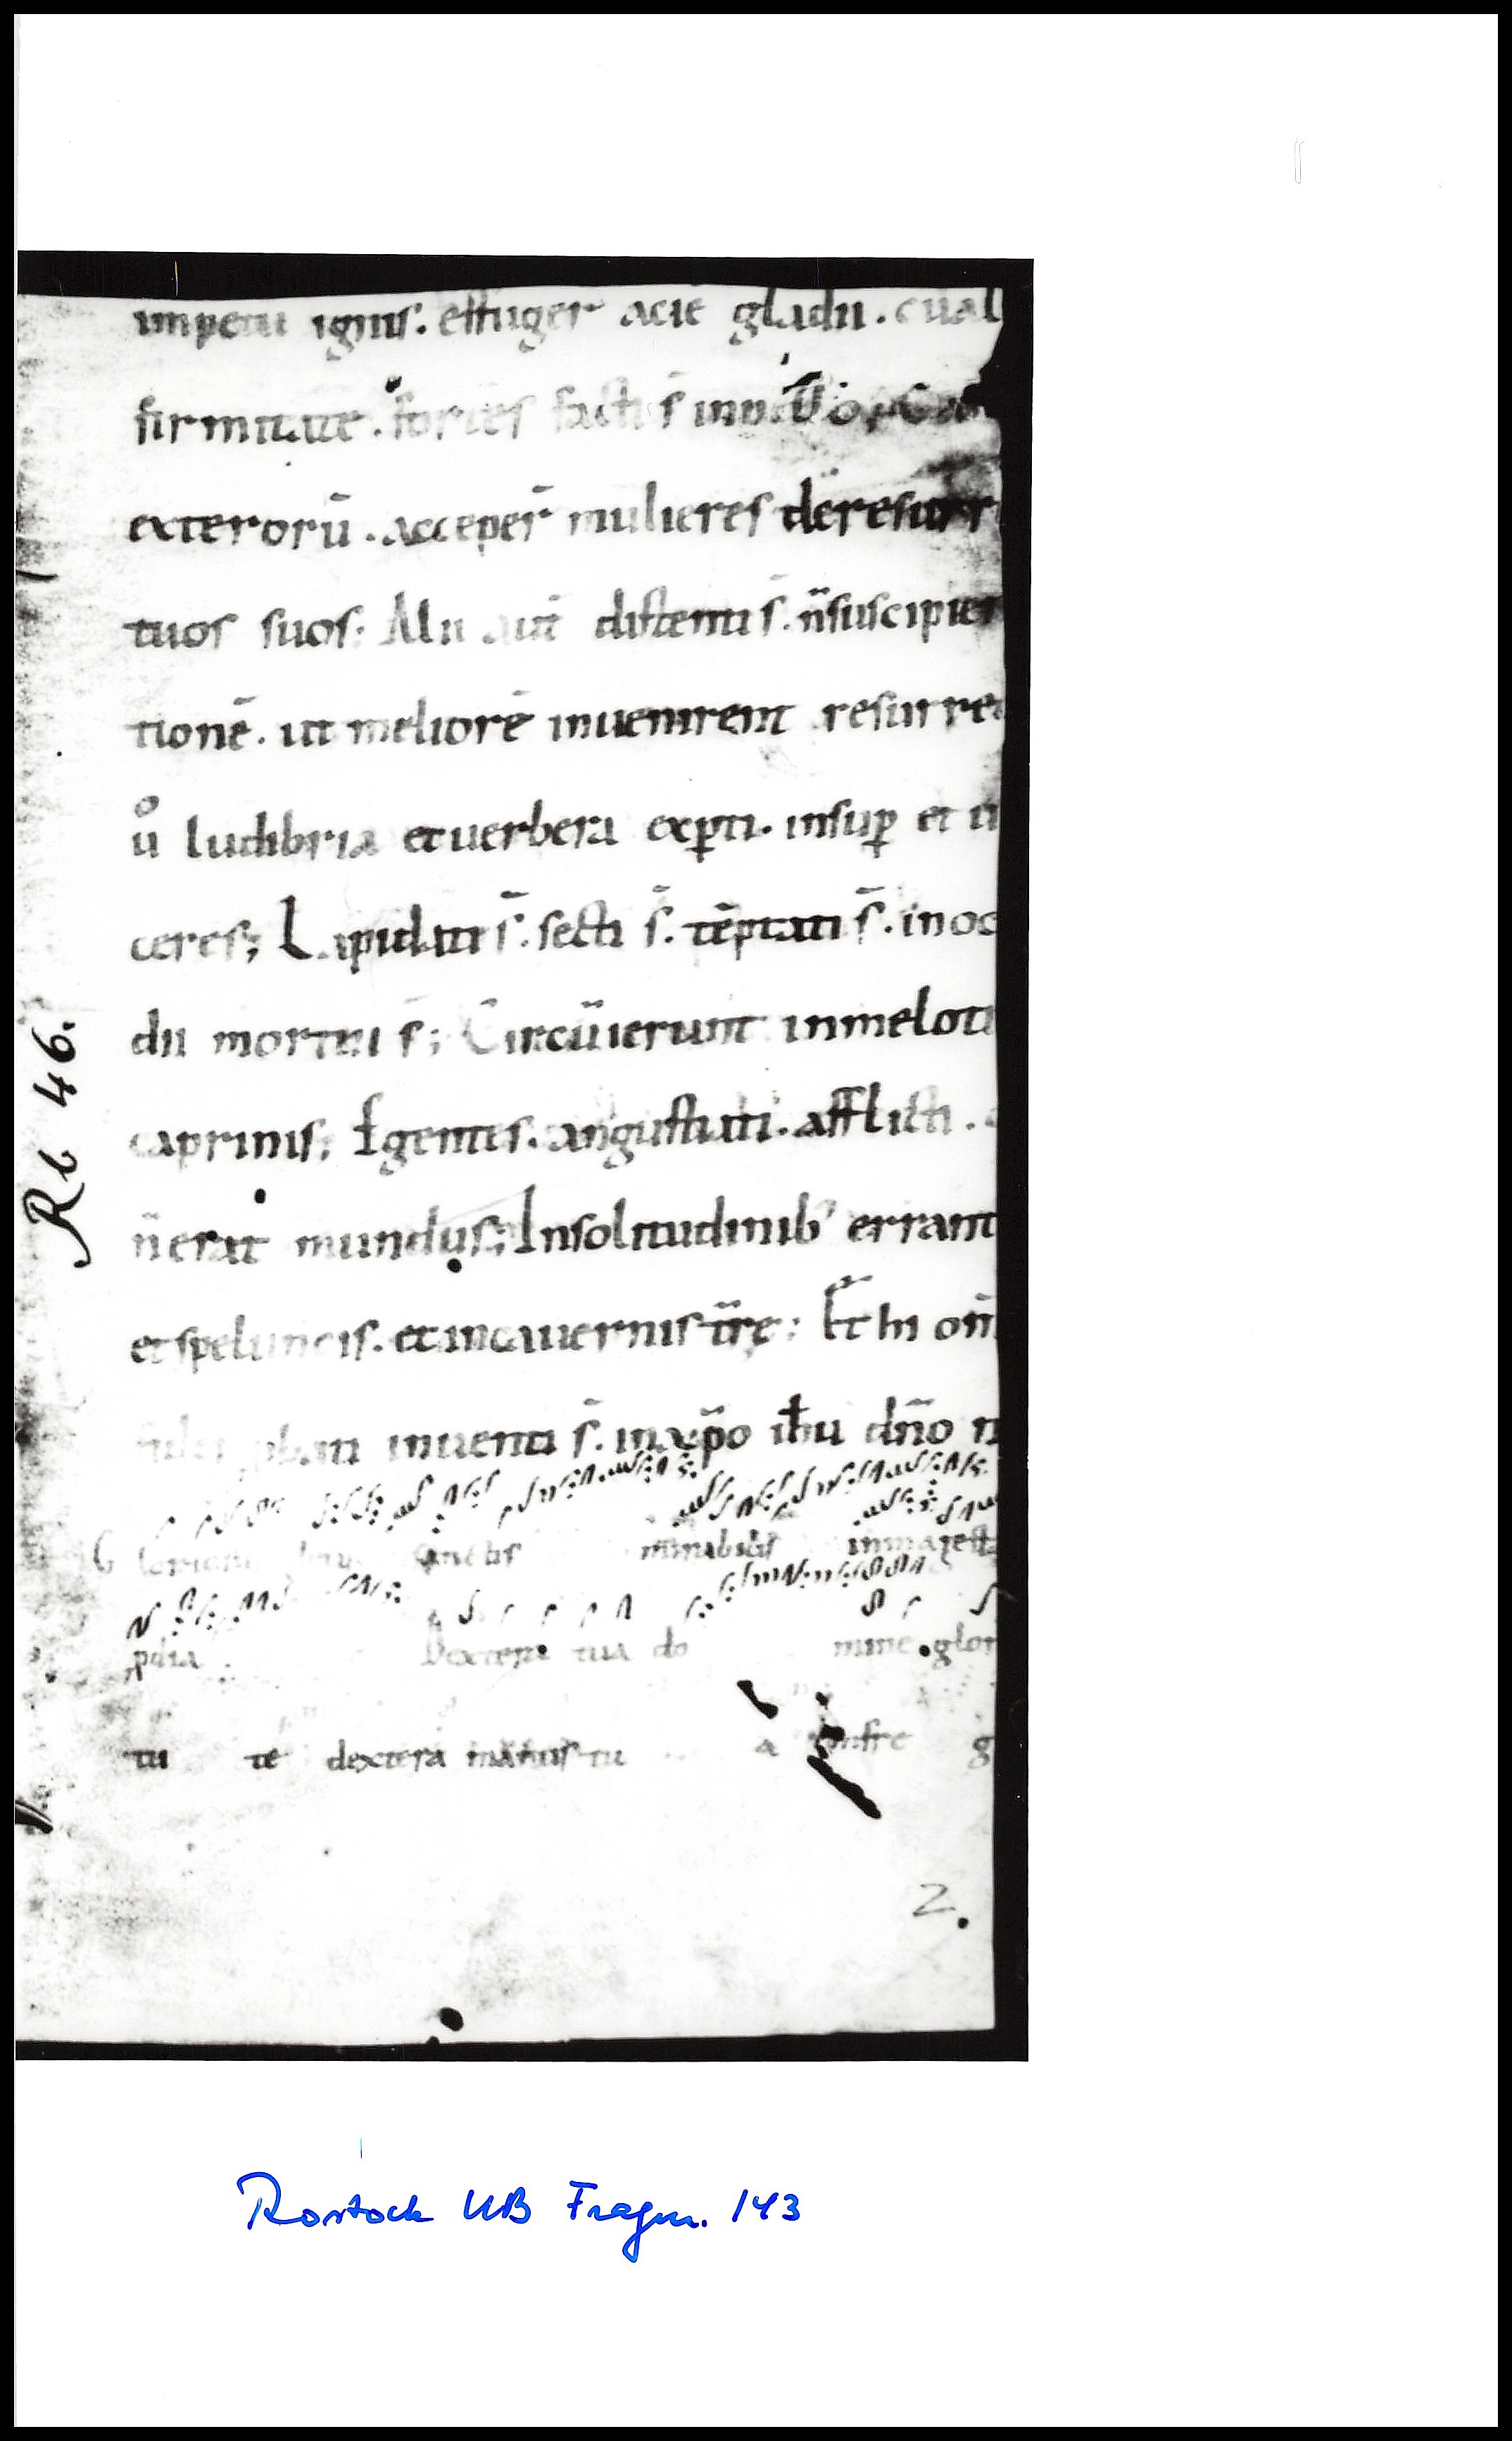 impetu ignis. effuger̄ aciē gladii. cual
firmitate. fortes facti s̄ in
exterorū. acceper̄ mulieres dēresurr
tuos suos; Alii aūt distenti s̄. n̄suscipien
tionē. ut meliorē inuenirent resurrec
uº ludibria et uerbera exꝑti. insuꝑ et ui
ceres; Lapidati s̄. secti s̄. tēptati s̄. in oc
dii mortui s̄; Circūierunt inmeloti
caprinis; Egentes. angustiati. afflicti.
n̄ erat mundus; Insolitudinib' errant
et speluncis. et incauernis tr̄ę; Et hi om̄
inuenti s̄. inxp̄o ih̄u dn̄o n
Gloriosus sanctis mirabilis inmagest
Dextera tua do mine. glor
tu te dextera manus tu a confre g
Rb 46.
2.
Rostock UB Fragm. 143